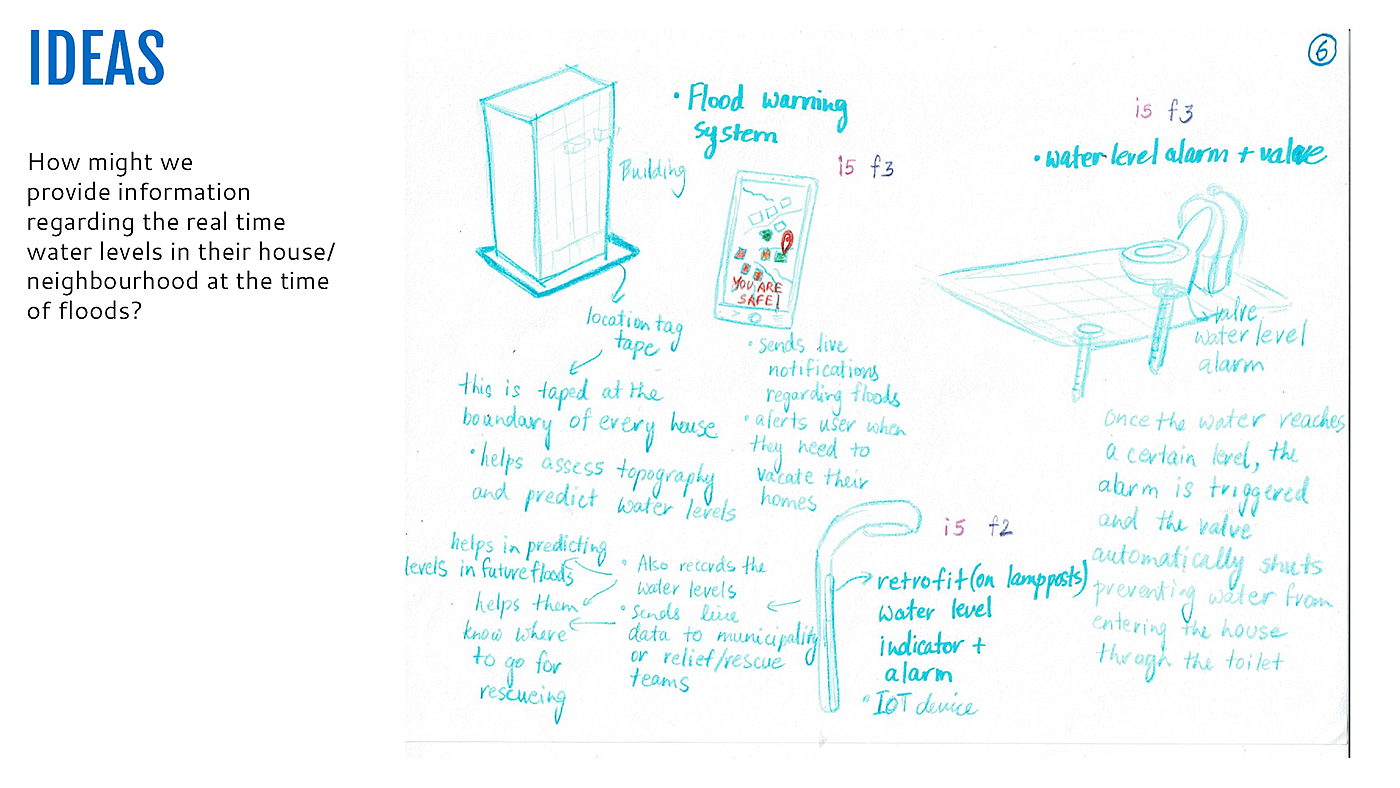 IDEAS
How might we
provide information
regarding the real time
water levels in their house/
neighbourhood at the time
of floods?
6
• Flood warning
system
i5 f3
Building
YOU ARE
SAFE!
location tag
tape
this is taped at the
boundary of every house
• helps assess topography
and predict water levels
• sends live
notifications
regarding floods
• alerts user when
they need to
vacate their
homes
i5 f3
• water level alarm + valve
valve
water level
alarm
Once the water reaches
a certain level, the
alarm is triggered
and the valve
automatically shuts
preventing water from
entering the house
through the toilet
i5 f2
retrofit (on lampposts)
water level
indicator +
alarm
• IOT device
• Also records the
water levels
• Sends live
data to municipality
or relief/rescue
teams
helps in predicting
levels in future floods
helps them
know where
to go for
rescueing